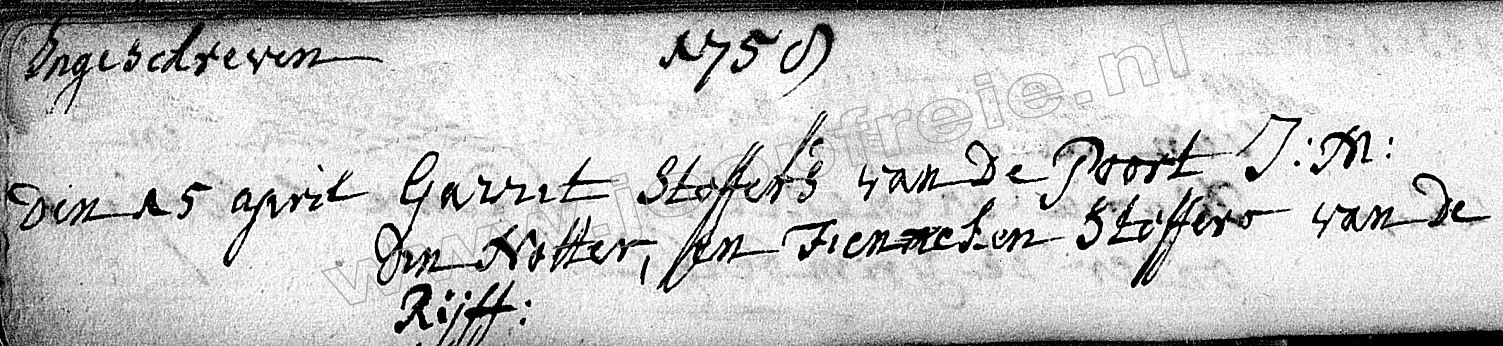 Ingeschreven 1758
Den 15 april Garrit Stoffers van de Poort J: M:
Den Notter, en Fennechen Stoffers van de
Rijff:
www.joopfreie.nl